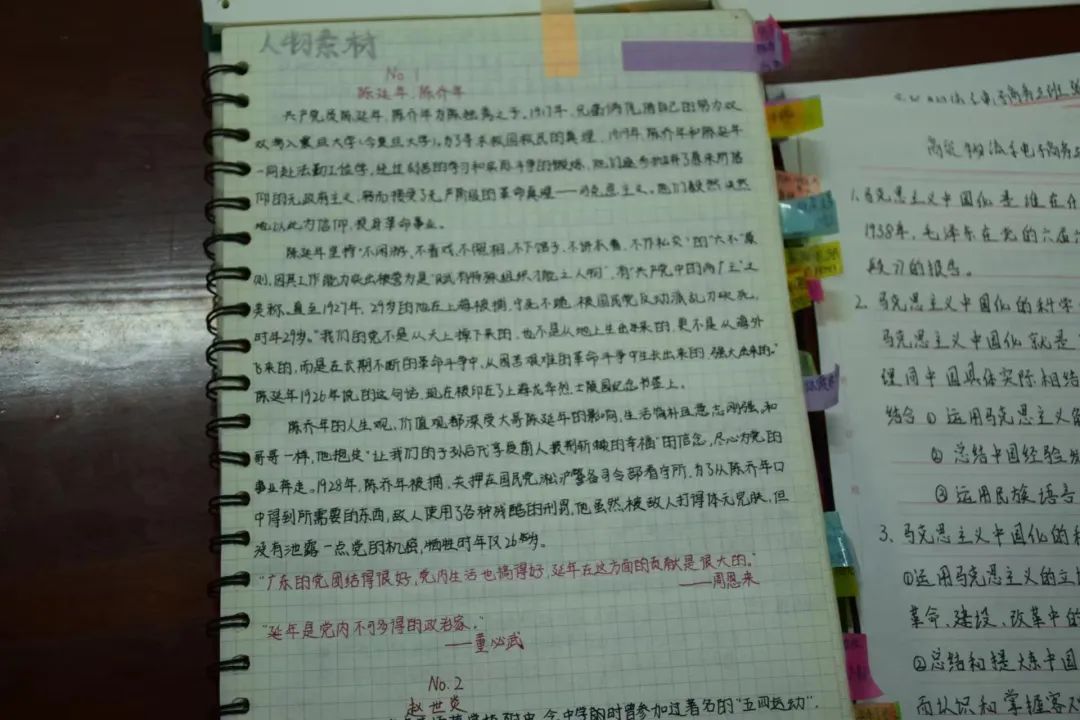 人物素材
No.1
陈延年、陈乔年
共产党员陈延年、陈乔年为陈独秀之子。1917年,兄弟俩凭借自己的努力双
双考入震旦大学(今复旦大学)。为了寻求救国救民的真理,1919年,陈乔年和陈延年
一同赴法勤工俭学,经过刻苦的学习和实际斗争的锻炼,他们逐步抛弃了原来所信
仰的无政府主义,转而接受了无产阶级的革命真理——马克思主义。他们毅然决然
地以此为信仰,投身革命事业。
陈延年坚持"不闲游、不看戏、不照相、不下馆子、不讲衣着、不作私交"的"六不"原
则,因其工作能力突出被誉为是"具有特殊组织才能之人物",有"共产党中的两广王"之
美称。直至1927年,29岁的他在上海被捕,宁死不跪,被国民党反动派乱刀砍死,
时年29岁。"我们的党不是从天上掉下来的,也不是从地上生出来的,更不是从海外
飞来的,而是在长期不断的革命斗争中,从困苦艰难的革命斗争中生长出来的,强大出来的。"
陈延年1926年说的这句话,现在被印在了上海龙华烈士陵园纪念书签上。
陈乔年的人生观、价值观都深受大哥陈延年的影响,生活俭朴且意志刚强,和
哥哥一样,他抱定"让我们的子孙后代享受前人披荆斩棘的幸福"的信念,尽心为党的
事业奔走。1928年,陈乔年被捕,关押在国民党淞沪警备司令部看守所,为了从陈乔年口
中得到所需要的东西,敌人使用了各种残酷的刑罚,他虽然被敌人打得体无完肤,但
没有泄露一点党的机密,牺牲时年仅26岁。
"广东的党团结得很好,党内生活也搞得好,延年在这方面的贡献是很大的。"
——周恩来
"延年是党内不可多得的政治家。"
——董必武
No.2
赵世炎
中学的时曾参加过著名的"五四运动",
1.马克思主义中国化是谁在什
1938年,毛泽东在党的六届六
阶段》的报告。
2.马克思主义中国化的科学
马克思主义中国化就是
理同中国具体实际相结
结合①运用马克思主义
②总结中国经验
③运用民族语言
3、马克思主义中国化的
①运用马克思主义的立
革命、建设、改革中的
②总结和提炼中国
而认识和掌握客